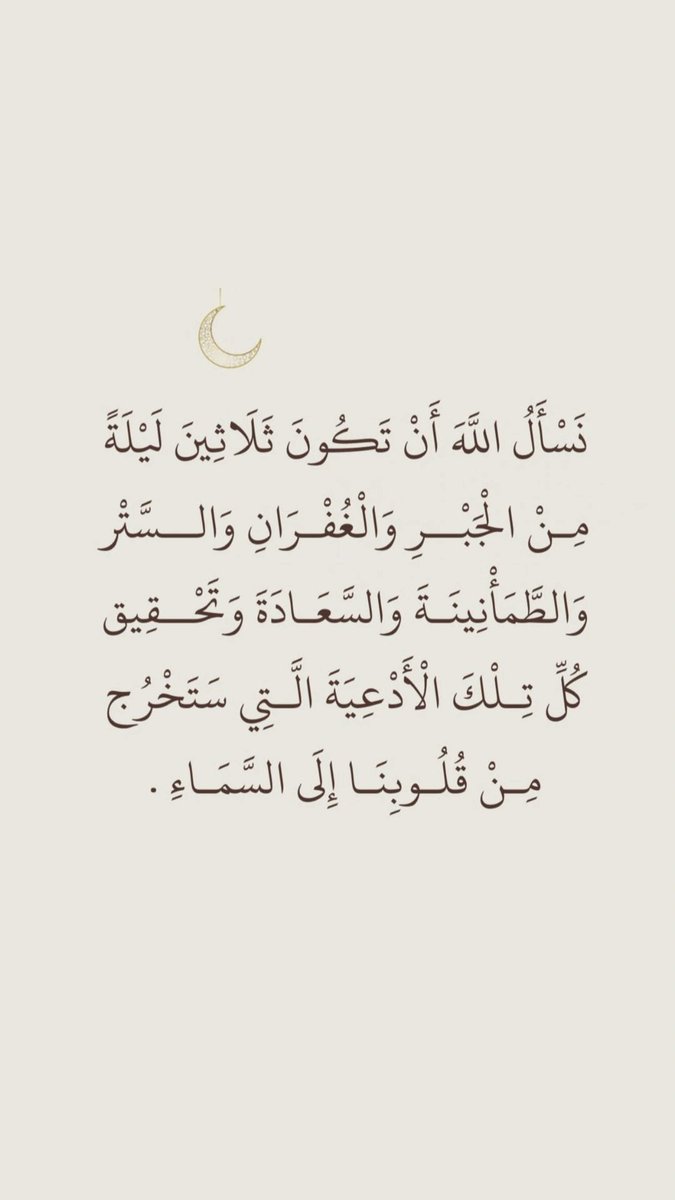 نَسْأَلُ اللَّهَ أَنْ تَكُونَ ثَلَاثِينَ لَيْلَةً
مِـنْ الْجَبْـــرِ وَالْغُفْـرَانِ وَالـــسَّتْر
وَالطَّمَأْنِينَـةَ وَالسَّعَـادَةَ وَتَحْـــقِيق
كُلِّ تِـلْكَ الْأَدْعِيَةَ الَّـتِي سَتَخْرُج
مِـنْ قُلُـوبِنَـا إِلَى السَّمَـاءِ .